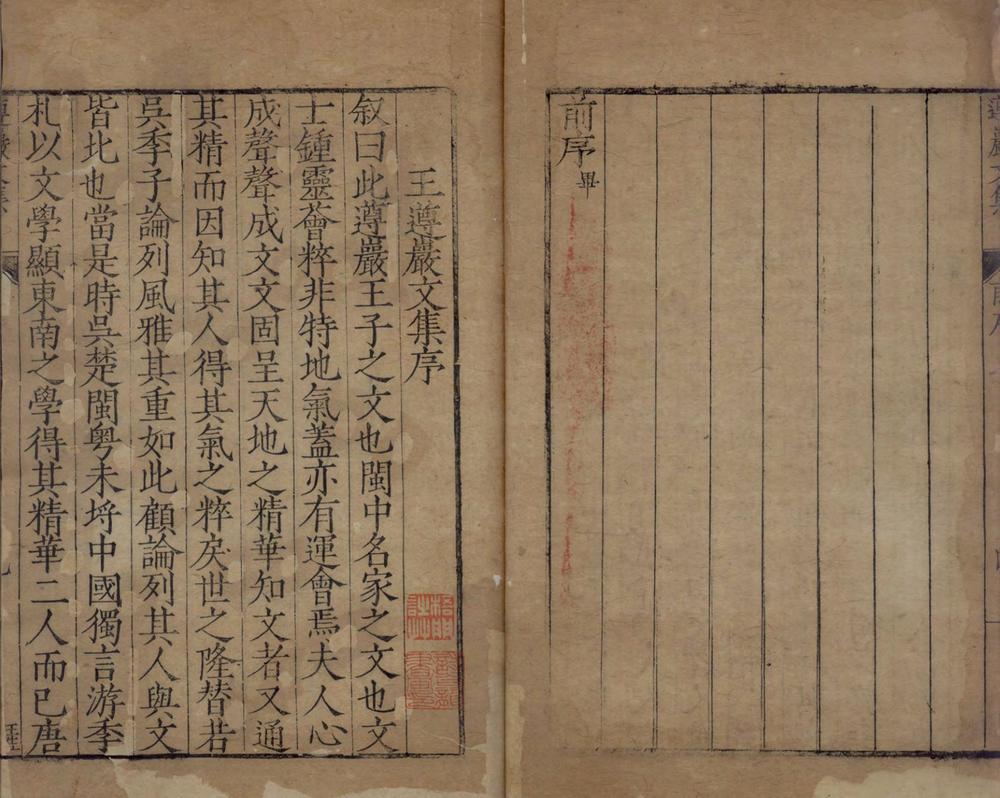 前序畢
王遵巖文集序
叙曰此遵巖王子之文也閩中名家之文也文
士鍾靈薈粹非特地氣蓋亦有運會焉夫人心
成聲聲成文文固呈天地之精華知文者又通
其精而因知其人得其氣之粹戾世之隆替若
吳季子論列風雅其重如此顧論列其人與文
皆比也當是時吳楚閩粵未埓中國獨言游季
札以文學顯東南之學得其精華二人而已唐